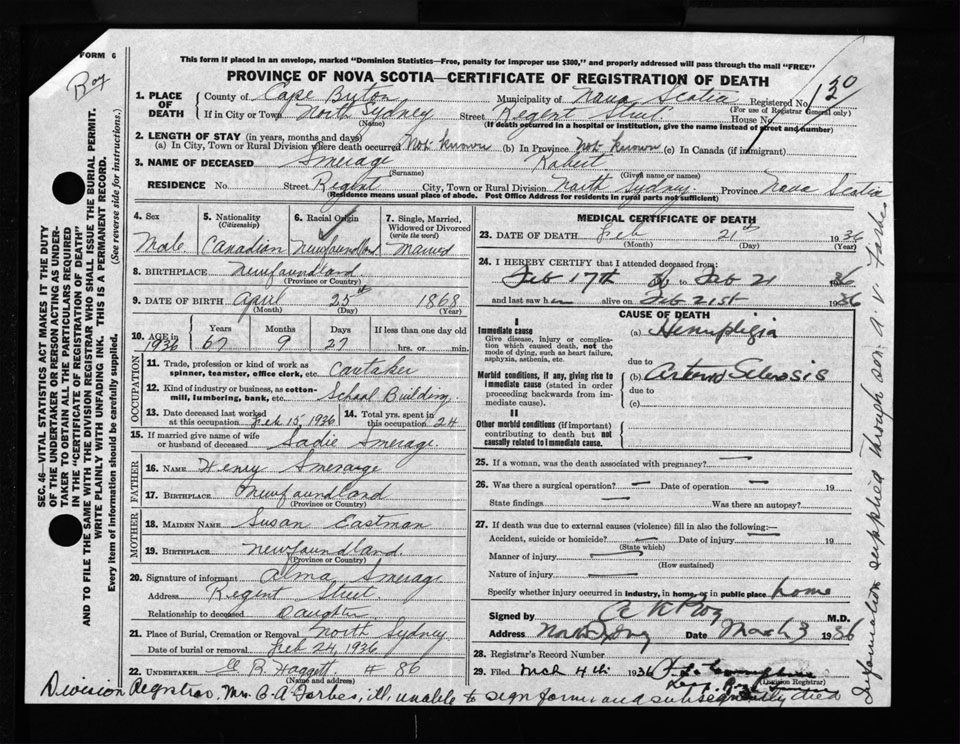 FORM 6
Roy
This form if placed in an envelope, marked "Dominion Statistics—Free, penalty for improper use $300," and properly addressed will pass through the mail "FREE"
PROVINCE OF NOVA SCOTIA—CERTIFICATE OF REGISTRATION OF DEATH
130
1. PLACE OF DEATH
County of Cape Breton Municipality of Nova Scotia Registered No.
(For use of Registrar General only)
If in City or Town North Sydney Street Regent Street House No.
(Name) (If death occurred in a hospital or institution, give the name instead of street and number)
2. LENGTH OF STAY (in years, months and days)
(a) In City, Town or Rural Division where death occurred Not known (b) In Province Not known (c) In Canada (if immigrant)
3. NAME OF DECEASED Smerage Robert
(Surname) (Given name or names)
RESIDENCE No. Street Regent City, Town or Rural Division North Sydney Province Nova Scotia
(Residence means usual place of abode. Post Office Address for residents in rural parts not sufficient)
4. Sex
Male
5. Nationality
(Citizenship)
Canadian
6. Racial Origin
Newfoundland
7. Single, Married, Widowed or Divorced
(write the word)
8. BIRTHPLACE Newfoundland
(Province or Country)
9. DATE OF BIRTH April 25th 1868
(Month) (Day) (Year)
10. AGE in 1936
Years Months Days If less than one day old
67 9 27 hrs. or min.
OCCUPATION
11. Trade, profession or kind of work as spinner, teamster, office clerk, etc. Cartaker
12. Kind of industry or business, as cotton-mill, lumbering, bank, etc. School Building
13. Date deceased last worked at this occupation Feb 15, 1936
14. Total yrs. spent in this occupation 24
15. If married give name of wife or husband of deceased Sadie Smerage
FATHER
16. NAME Henry Smerage
17. BIRTHPLACE Newfoundland
(Province or Country)
MOTHER
18. MAIDEN NAME Susan Eastman
19. BIRTHPLACE Newfoundland
(Province or Country)
20. Signature of informant Alma Smerage
Address Regent Street
Relationship to deceased Daughter
21. Place of Burial, Cremation or Removal North Sydney
Date of burial or removal Feb 24, 1936
22. UNDERTAKER G. R. Haggett # 86
(Name and address)
MEDICAL CERTIFICATE OF DEATH
23. DATE OF DEATH Feb 21st 1936
(Month) (Day) (Year)
24. I HEREBY CERTIFY that I attended deceased from:
Feb 17th to Feb 21 1936
and last saw h alive on Feb 21st 1936
CAUSE OF DEATH
I
Immediate cause
Give disease, injury or complication which caused death, not the mode of dying, such as heart failure, asphyxia, asthenia, etc.
(a) Hemiplegia
due to
Morbid conditions, if any, giving rise to immediate cause (stated in order proceeding backwards from immediate cause).
(b) Arterio Sclerosis
due to
(c)
II
Other morbid conditions (if important) contributing to death but not causally related to immediate cause.
25. If a woman, was the death associated with pregnancy? —
26. Was there a surgical operation? — Date of operation — 19
State findings — Was there an autopsy?
27. If death was due to external causes (violence) fill in also the following:—
Accident, suicide or homicide? — Date of injury — 19
(State which)
Manner of injury —
(How sustained)
Nature of injury —
Specify whether injury occurred in industry, in home, or in public place home
Signed by M.D.
Address North Sydney Date March 3 1936
28. Registrar's Record Number
29. Filed Mch 4th 1936
(Division Registrar)
Division Registrar, Mrs. C. A. Forbes, ill, unable to sign form and subsequently died
Information supplied through son A. V. Forbes
SEC. 46—VITAL STATISTICS ACT MAKES IT THE DUTY
OF THE UNDERTAKER OR PERSON ACTING AS UNDER-
TAKER TO OBTAIN ALL THE PARTICULARS REQUIRED
IN THE "CERTIFICATE OF REGISTRATION OF DEATH"
AND TO FILE THE SAME WITH THE DIVISION REGISTRAR WHO SHALL ISSUE THE BURIAL PERMIT.
WRITE PLAINLY WITH UNFADING INK. THIS IS A PERMANENT RECORD.
Every item of information should be carefully supplied. (See reverse side for instructions.)